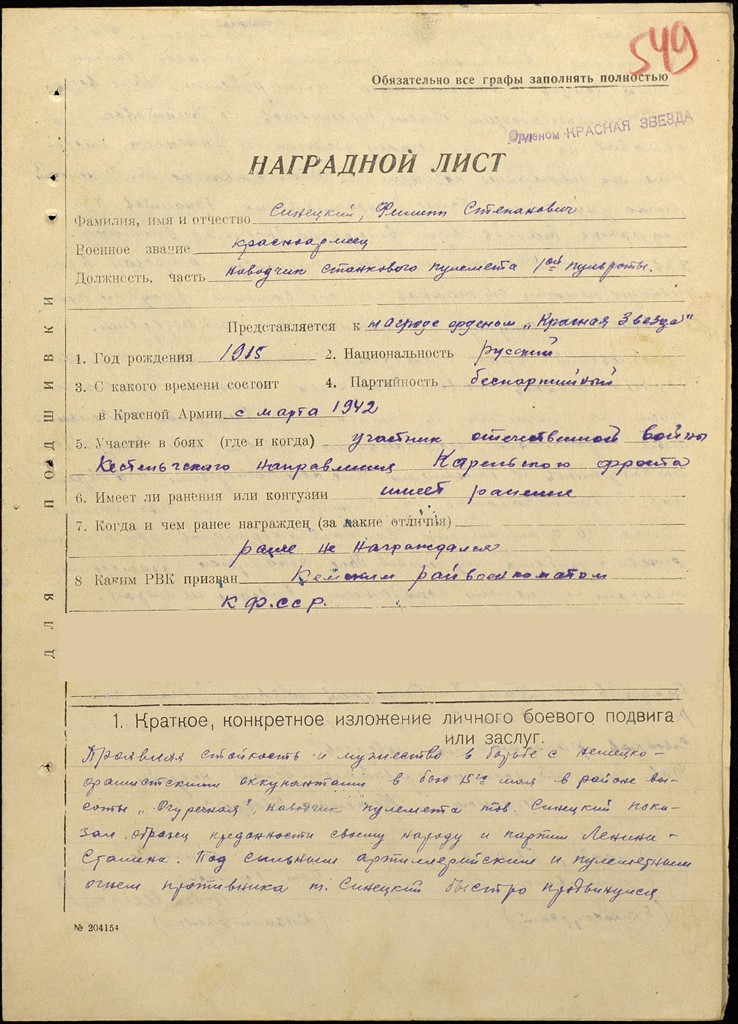 549
Обязательно все графы заполнять полностью
Орденом КРАСНАЯ ЗВЕЗДА
НАГРАДНОЙ ЛИСТ
Фамилия, имя и отчество Синецкий, Филипп Степанович
Военное звание красноармеец
Должность, часть наводчик станкового пулемета 1ой пульроты.
Представляется к награде орденом „Красная Звезда"
1. Год рождения 1915 2. Национальность русский
3. С какого времени состоит 4. Партийность беспартийный
в Красной Армии с марта 1942
5. Участие в боях (где и когда) участник отечественной войны
Кестеньгского направления Карельского фронта
6. Имеет ли ранения или контузии имеет ранение
7. Когда и чем ранее награжден (за какие отличия)
ранее не награждался
8 Каким РВК призван Кемским райвоенкоматом
К.Ф.ССР.
ДЛЯ ПОДШИВКИ
1. Краткое, конкретное изложение личного боевого подвига
или заслуг.
Проявляя стойкость и мужество в борьбе с немецко-
фашистскими оккупантами в бою 15го мая в районе вы-
соты „Огуречная", наводчик пулемета тов. Синецкий пока-
зал образец преданности своему народу и партии Ленина-
Сталина. Под сильным артиллерийским и пулеметным
огнем противника т. Синецкий быстро продвинулся
№ 204154